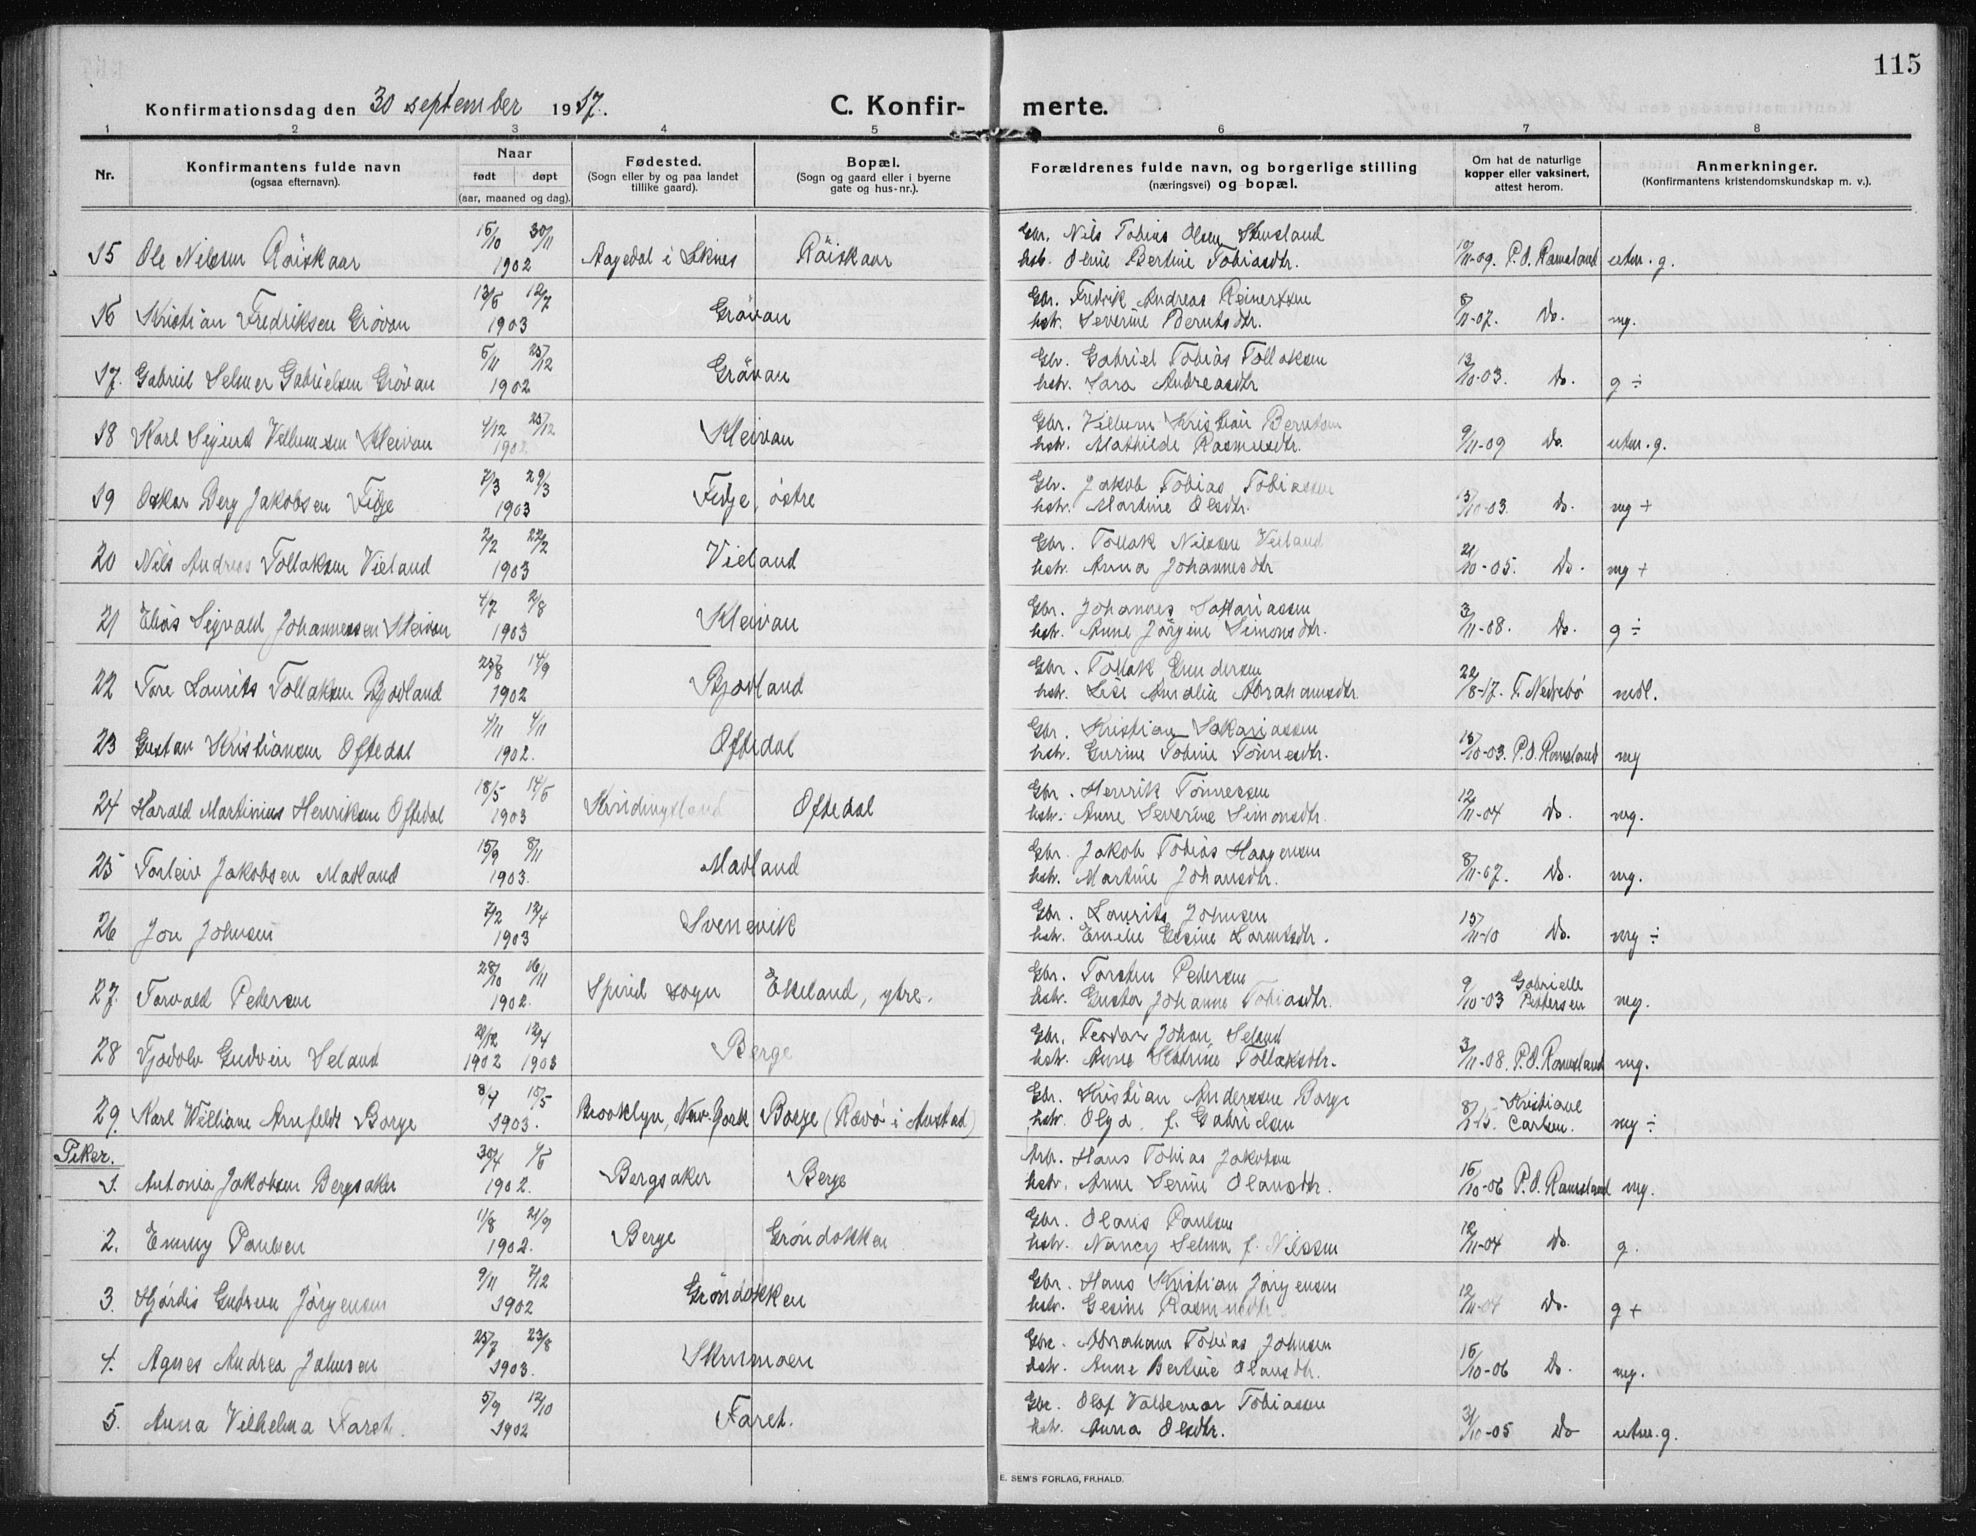 115
Konfirmationsdag den 30 september 1917. C. Konfirmerte.
1 2 3 4 5 6 7 8
Nr. Konfirmantens fulde navn (ogsaa efternavn). Naar født døpt (aar, maaned og dag). Fødested. (Sogn eller by og paa landet tillike gaard). Bopæl. (Sogn og gaard eller i byerne gate og hus-nr.). Forældrenes fulde navn, og borgerlige stilling (næringsvei) og bopæl. Om hat de naturlige kopper eller vaksinert, attest herom. Anmerkninger. (Konfirmantens kristendomskundskap m. v.).
15 Ole Nilsen Röiskaar 15/10 30/11 1902 Aagedal i Röiskaar Gbr. Nils Tobias Olsen
hstr. Oline Bertine Tobiasdtr. 10/11-09. P.O. Ramsland utm. g.
16 Kristian Fredriksen Grøvan 13/6 12/7 1903 Grövan Gbr. Fredrik Andreas Reinertsen
hstr. Severine Berntsdtr. 8/11-07. Do. mg.
17. Gabriel Selmer Gabrielsen Grøvan 5/11 25/12 1902 Grövan Gbr. Gabriel Tobias Tollaksen
hstr. Sara Andreasdtr 13/10-03. Do. g ÷
18 Karl Sigurd Vellumsen Kleivan 4/12 25/12 1902 Kleivan Gbr. Villum Kristian Berntsen
hstr. Mathilde Rasmusdtr. 9/11-09 Do. utm. g.
19 Oskar Berg Jakobsen Fidje 7/3 29/3 1903 Fidje, östre Gbr. Jakob Tobias Tobiassen
hstr. Martine Olsdtr. 13/10-03. Do. mg +
20 Nils Andreas Tollaksen Vieland 2/2 22/2 1903 Vieland Gbr. Tollak Nilssen Veiland
hstr. Anna Johannesdtr 21/10-05. Do. mg +
21 Elias Sigvald Johannessen Kleivan 4/7 2/8 1903 Kleivan Gbr. Johannes Sakariassen
hstr. Anne Jörgine Simonsdtr. 3/11-08. Do. g ÷
22 Tore Laurits Tollaksen Bjodland 23/8 14/9 1902 Bjodland Gbr. Tollak Gundersen
hstr. Lise Amalie Abrahamsdtr 22/8-17. T. Nedrebö mdl.
23 Gustav Kristiansen Oftedal 4/11 1902. Oftedal Gbr. Kristian Sakariassen
hstr. Gurine Tobine Tönnesdtr. 13/10-03. P.O. Ramsland mg
24 Harald Martinius Henriksen Oftedal 18/5 14/6 1903 Oftedal Gbr. Henrik Tönnessen
hstr. Anne Severine Simonsdtr. 12/11-04 Do. mg.
25 Torleiv Jakobsen Madland 15/9 8/11 1903. Madland Gbr. Jakob Tobias Haagensen
hstr. Martine Johansdtr. 8/11-07. Do. mg.
26 Jon Johnsen 7/2 12/4 1903 Svenevik Gbr. Laurits Johnsen
hstr. Emelie Gesine Larentsdtr. 15/11-10 Do. mg ÷
27. Torvald Pedersen 28/10 16/11 1902. Spired sogn Ekeland, ytre. Gbr. Torsten Pedersen
hstr. Gusta Johanne Tobiasdtr. 9/10-03 Gabrielle Pettersen mg.
28 Tjodolv Gudvin Seland 20/12 1902 12/4 1903 Berge Gbr. Teodor Johan Seland
hstr. Anne Katrine Tollaksdtr. 3/11-08. P.O. Ramsland mg.
29. Karl William Arnfeldt Borge 8/4 10/5 1903. Brooklyn, New-York Borge (Rævö i Austad) Gbr. Kristian Anderssen Borge
hstr. Olga f. Gabrielsen Kristiane Carlsen. mg ÷
Piker.
1. Antonia Jakobsen Bergsaker 30/4 1/6 1902. Bergsaker Berge Arb. Hans Tobias Jakobsen
hstr. Anne Serine Olausdtr. 15/10-06 P.O. Ramsland mg.
2. Emmy Paulsen 11/8 21/9 1902. Berge Gröndokken Gbr. Olaus Paulsen
hstr. Nancy Selma f. Nilssen 12/11-04 Do. g.
3. Hjördis Gudrun Jörgensen 9/11 7/12 1902 Gröndokken Gbr. Hans Kristian Jörgensen
hstr. Gesine Rasmusdtr. 12/11-04 Do. g +
4. Agnes Andrea Johnsen 25/7 23/8 1903. Skrumoen Gbr. Abraham Tobias Johnsen
hstr. Anne Bertine Olausdtr. 15/10-06 Do. mg.
5. Anna Vilhelma Faret. 5/9 12/10 1902 Faret. Gbr. Olaf Valdemar Tobiassen
hstr. Anna Olsdtr. 31/10-05 Do utm. g.
E. SEM'S FORLAG, FR.HALD.